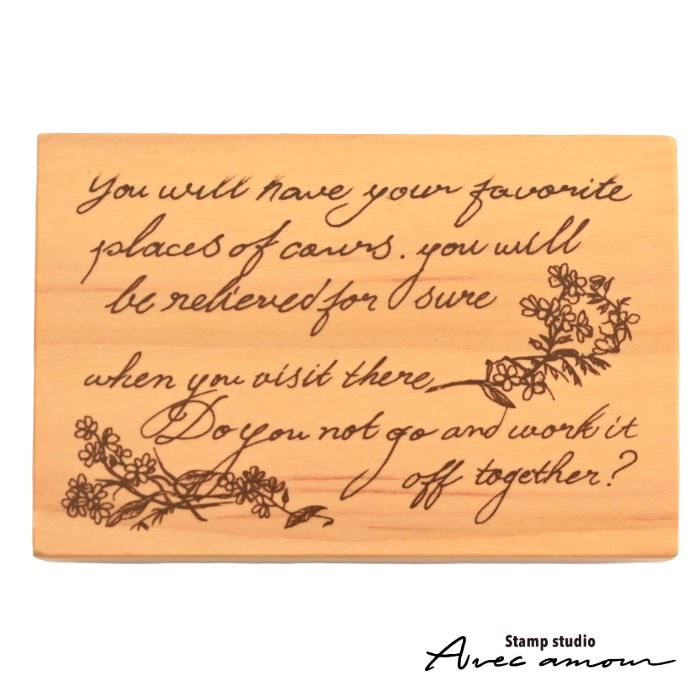 You will have your favorite
places of cours. you will
be relieved for sure
when you visit there
Do you not go and work it
off together?
Stamp studio
Avec amour